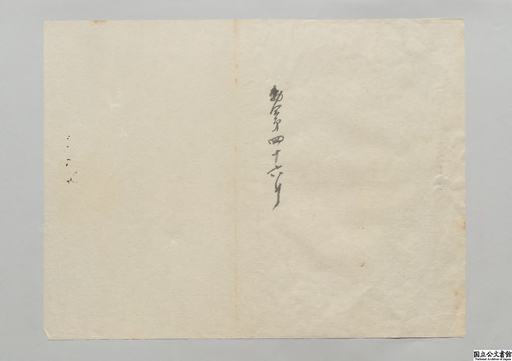 勅令第四十六号
国立公文書館
National Archives of Japan